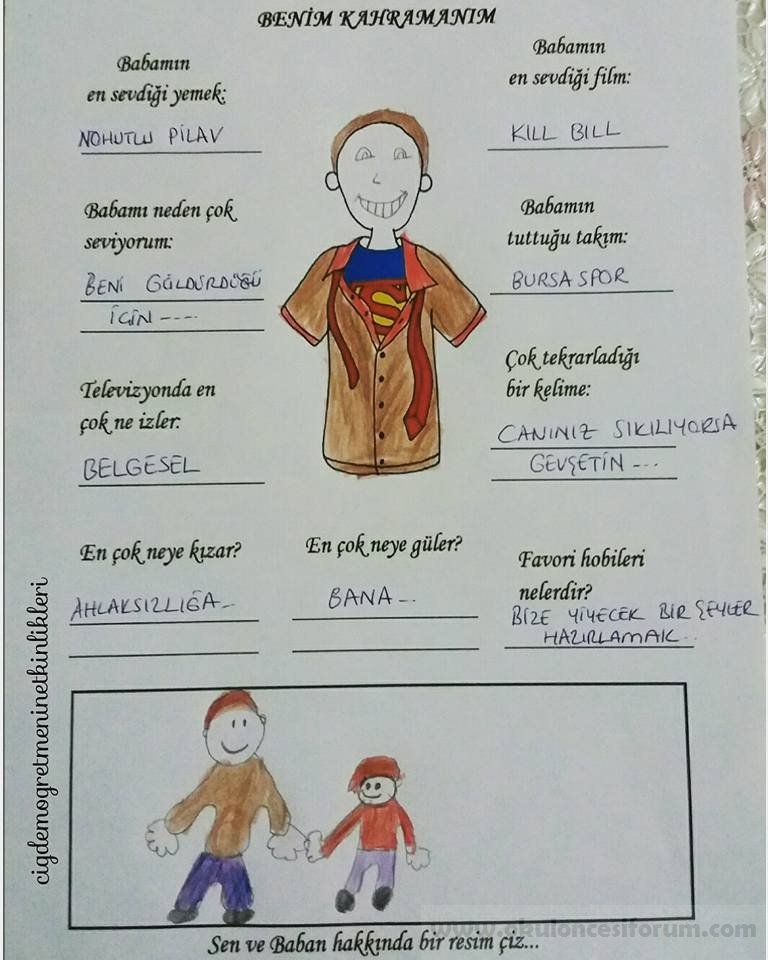 BENİM KAHRAMANIM
Babamın
en sevdiği yemek:
NOHUTLU PİLAV
Babamın
en sevdiği film:
KILL BILL
Babamı neden çok
seviyorum:
BENİ GÜLDÜRDÜĞÜ
İÇİN ----
Babamın
tuttuğu takım:
BURSASPOR
Televizyonda en
çok ne izler:
BELGESEL
Çok tekrarladığı
bir kelime:
CANINIZ SIKILIYORSA
GEVŞETİN ---
En çok neye kızar?
AHLAKSIZLIĞA..
En çok neye güler?
BANA...
Favori hobileri
nelerdir?
BİZE YİYECEK BİR ŞEYLER
HAZIRLAMAK..
S
cigdemogretmeninetkinlikleri
www.okuloncesiforum.com
Sen ve Baban hakkında bir resim çiz...